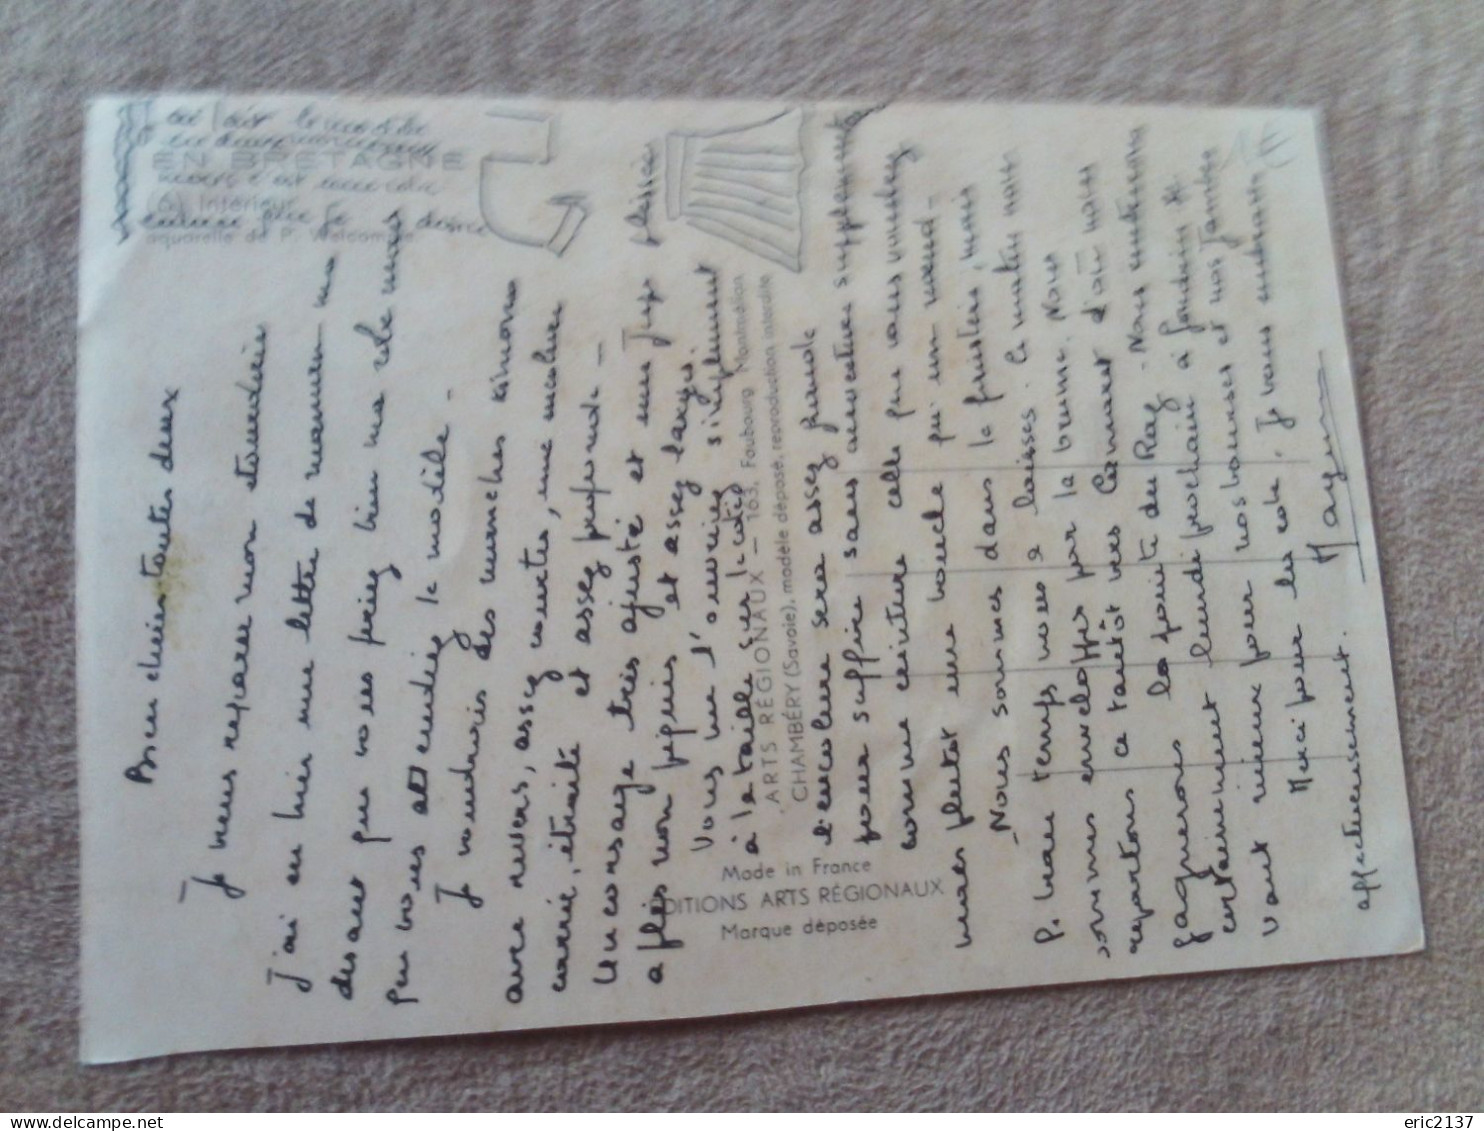 Bien chères toutes deux
Je veux réparer mon étourderie
J'ai eu hier une lettre de maman me
disant que vous feriez bien ma robe mais
que vous attendiez le modèle -
Je voudrais des manches kimono
avec revers, assez courtes, une encolure
carrée, étroite et assez profonde -
Un corsage très ajusté et une jupe plissée
à plis non piqués et assez larges.
Vous me l'ouvrirez simplement
à la taille sur le côté
l'encolure sera assez grande
pour suffire sans ouverture supplémentaire
comme ceinture celle que vous voudrez
mais plutôt une boucle qu'un nœud -
Nous sommes dans le Finistère, mais
le beau temps nous laisse. Ce matin nous
sommes enveloppés par la brume. Nous
repartons ce tantôt vers d'où nous
gagnerons la pointe du Raz - Nous rentrerons
certainement lundi prochain à
vaut mieux pour nos bourses et nos jambes
Merci pour la robe, Je vous embrasse
affectueusement.
EN BRETAGNE
(6) Intérieur
aquarelle de P. Welcomme
ARTS RÉGIONAUX — 163, Faubourg Montmélian
CHAMBÉRY (Savoie), modèle déposé, reproduction interdite
Made in France
EDITIONS ARTS RÉGIONAUX
Marque déposée
eric2137